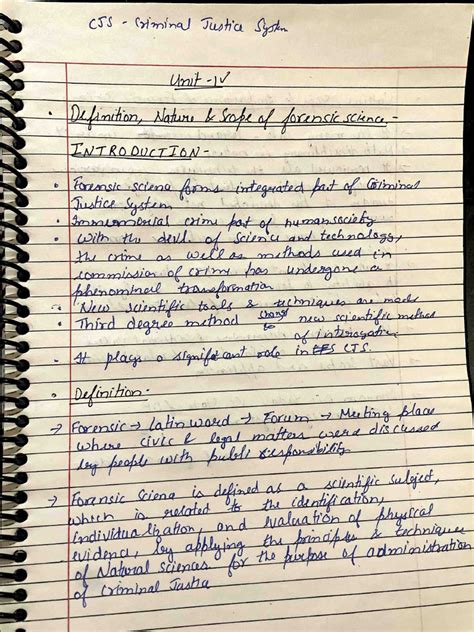 CJS - Criminal Justice System
Unit - IV
• Definition, Nature & Scope of forensic science -
INTRODUCTION -
• Forensic sciene forms integrated part of Criminal
Justice System
• Immemorial crime part of human society
• with the devl. of science and technology,
the crime as well as methods used in
commission of crime has undergone a
phenominal transformation
• New scientific tools & techniques are made
• Third degree method change to new scientific method
of interogation
• It plays a significant role in CJS.
• Definition -
→ Forensic → Latin word → Forum → Meeting place
where civic & legal matters were discussed
by people with public responsibility
→ Forensic Sciene is defined as a scientific subject,
which is related to the identification,
individualization, and evaluation of physical
evidence, by applying the principles & techniques
of Natural sciences for the purpose of administration
of Criminal Justice